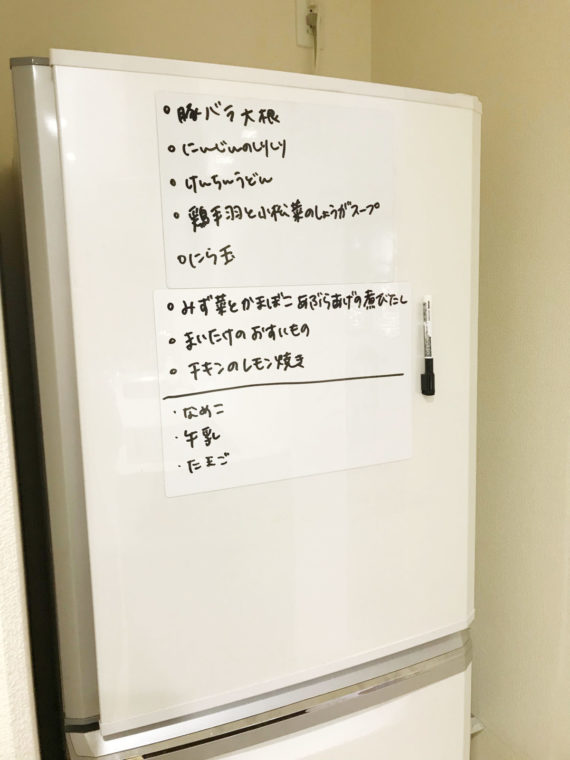 ○ 豚バラ大根
○ にんじんのしりしり
○ けんちんうどん
○ 鶏手羽と小松菜のしょうがスープ
○ にら玉
○ みず菜とかまぼこあぶらあげの煮びたし
○ まいたけのおすいもの
○ チキンのレモン焼き
・なめこ
・牛乳
・たまご